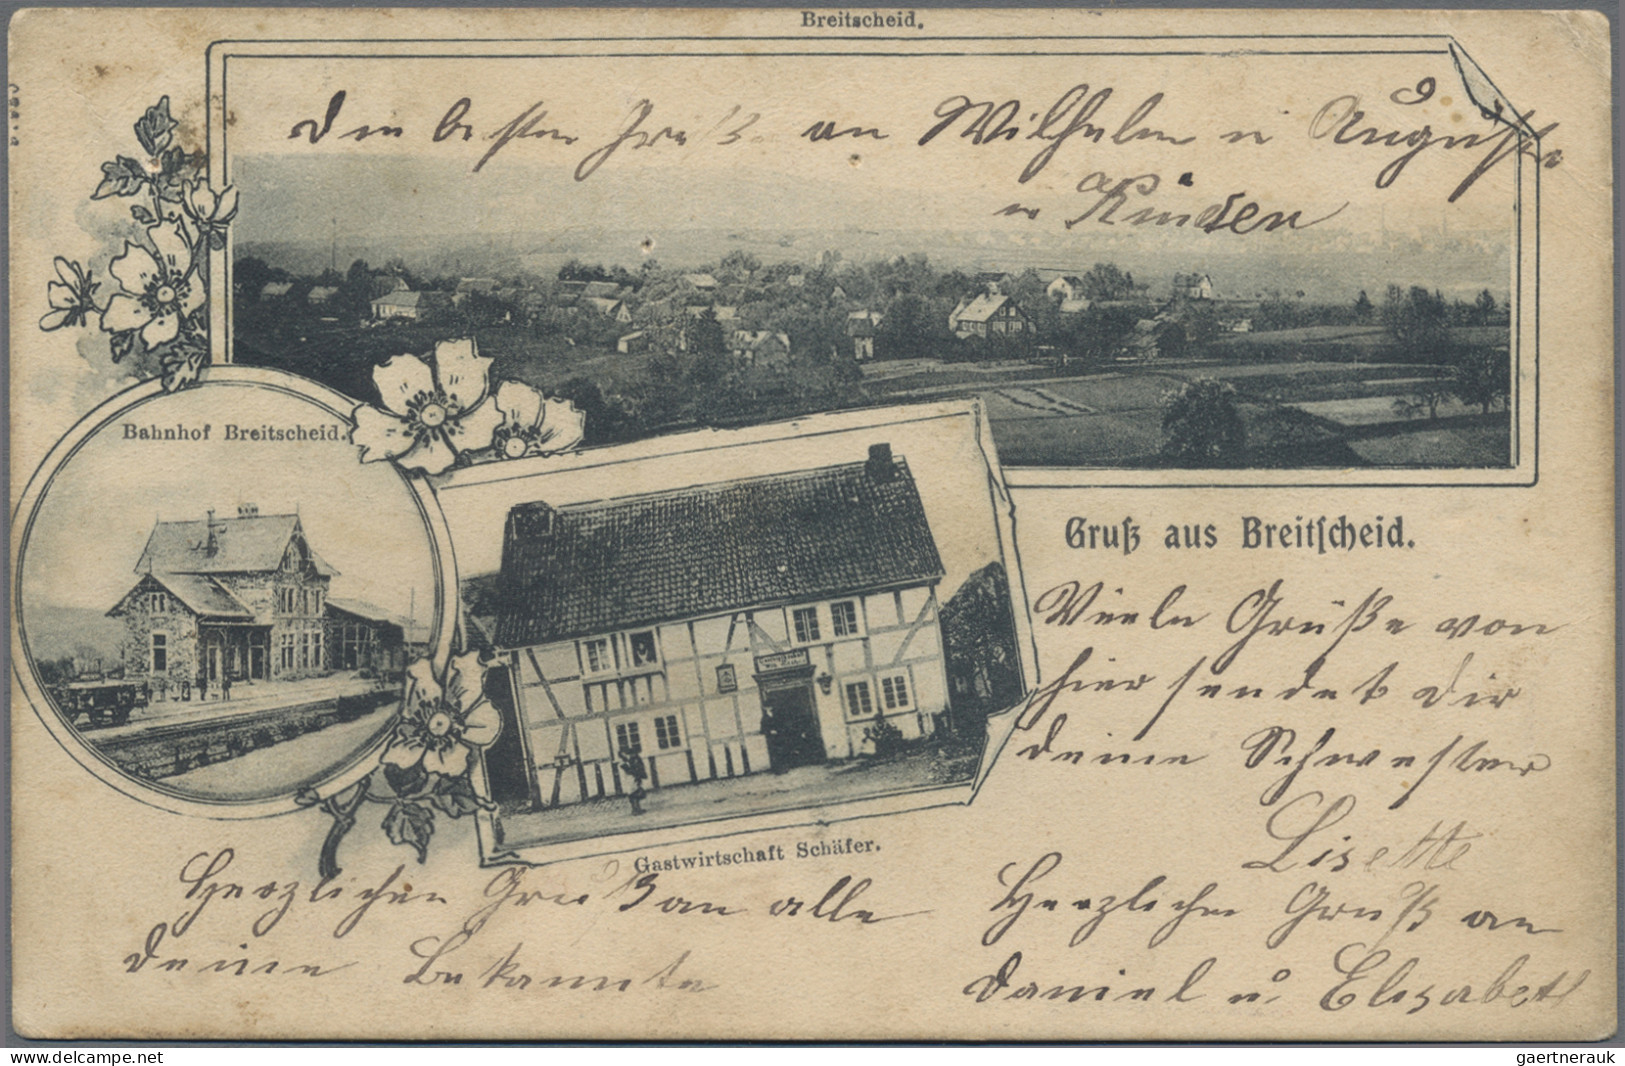 Breitscheid.
Den besten Gruß an Wilhelm u Auguste
u Kinder
Bahnhof Breitscheid.
Gruß aus Breitscheid.
Viele Grüße von
hier sendet dir
deine Schwester
Lisette
Gastwirtschaft Schäfer.
Herzlichen Gruß an alle
deine Bekannte
Herzlichen Gruß an
Daniel u. Elisabeth
www.delcampe.net
gaertnerauk